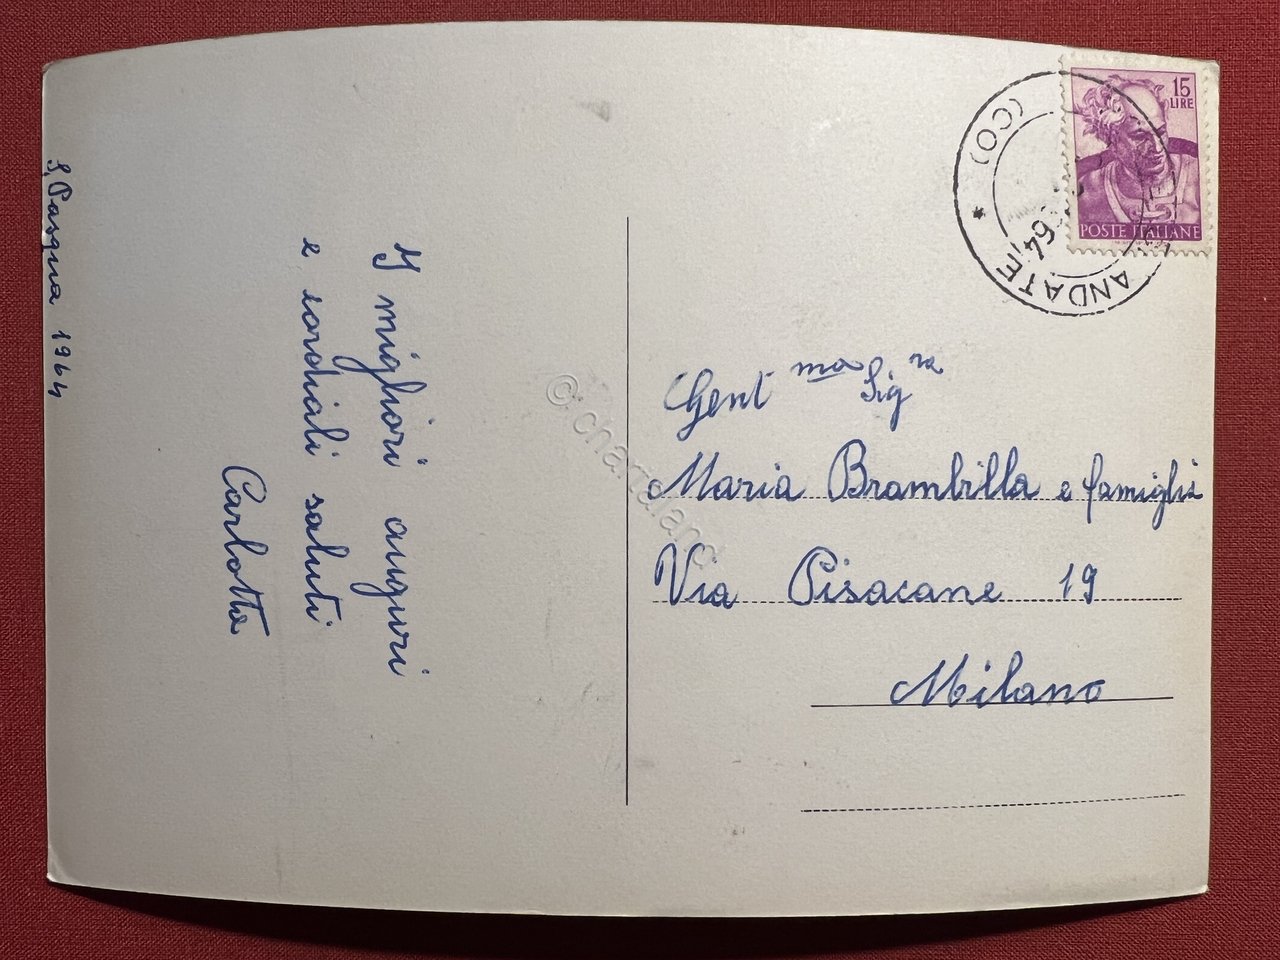 S. Pasqua 1964
I migliori auguri
e cordiali saluti
Carlotta
15
LIRE
POSTE ITALIANE
ANDATE
64
(CO)
*
Gent ma Sig ra
Maria Brambilla e famiglia
Via Pisacane 19
Milano